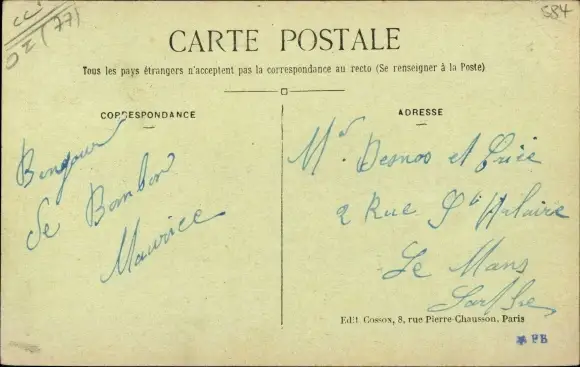 CCI
OZ (77)
584
CARTE POSTALE
Tous les pays étrangers n'acceptent pas la correspondance au recto (Se renseigner à la Poste)
CORRESPONDANCE
Bonjour
de Bombon
Maurice
ADRESSE
Mr. Desnos et
2 Rue St Hilaire
Le Mans
Sarthe
Edit. Cosson, 8, rue Pierre-Chausson, Paris
PB